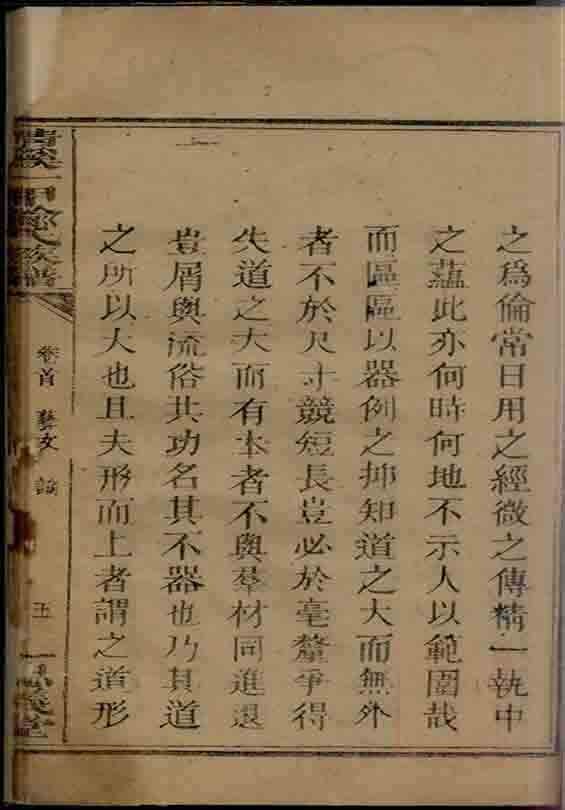 之為倫常日用之經微之傳精一執中
之蘊此亦何時何地不示人以範圍哉
而區區以器例之抑知道之大而無外
者不於尺寸競短長豈必於毫釐爭得
失道之大而有本者不與羣材同進退
豈屑與流俗共功名其不器也乃其道
之所以大也且夫形而上者謂之道形
氏族譜
卷首 藝文 論
五
義堂